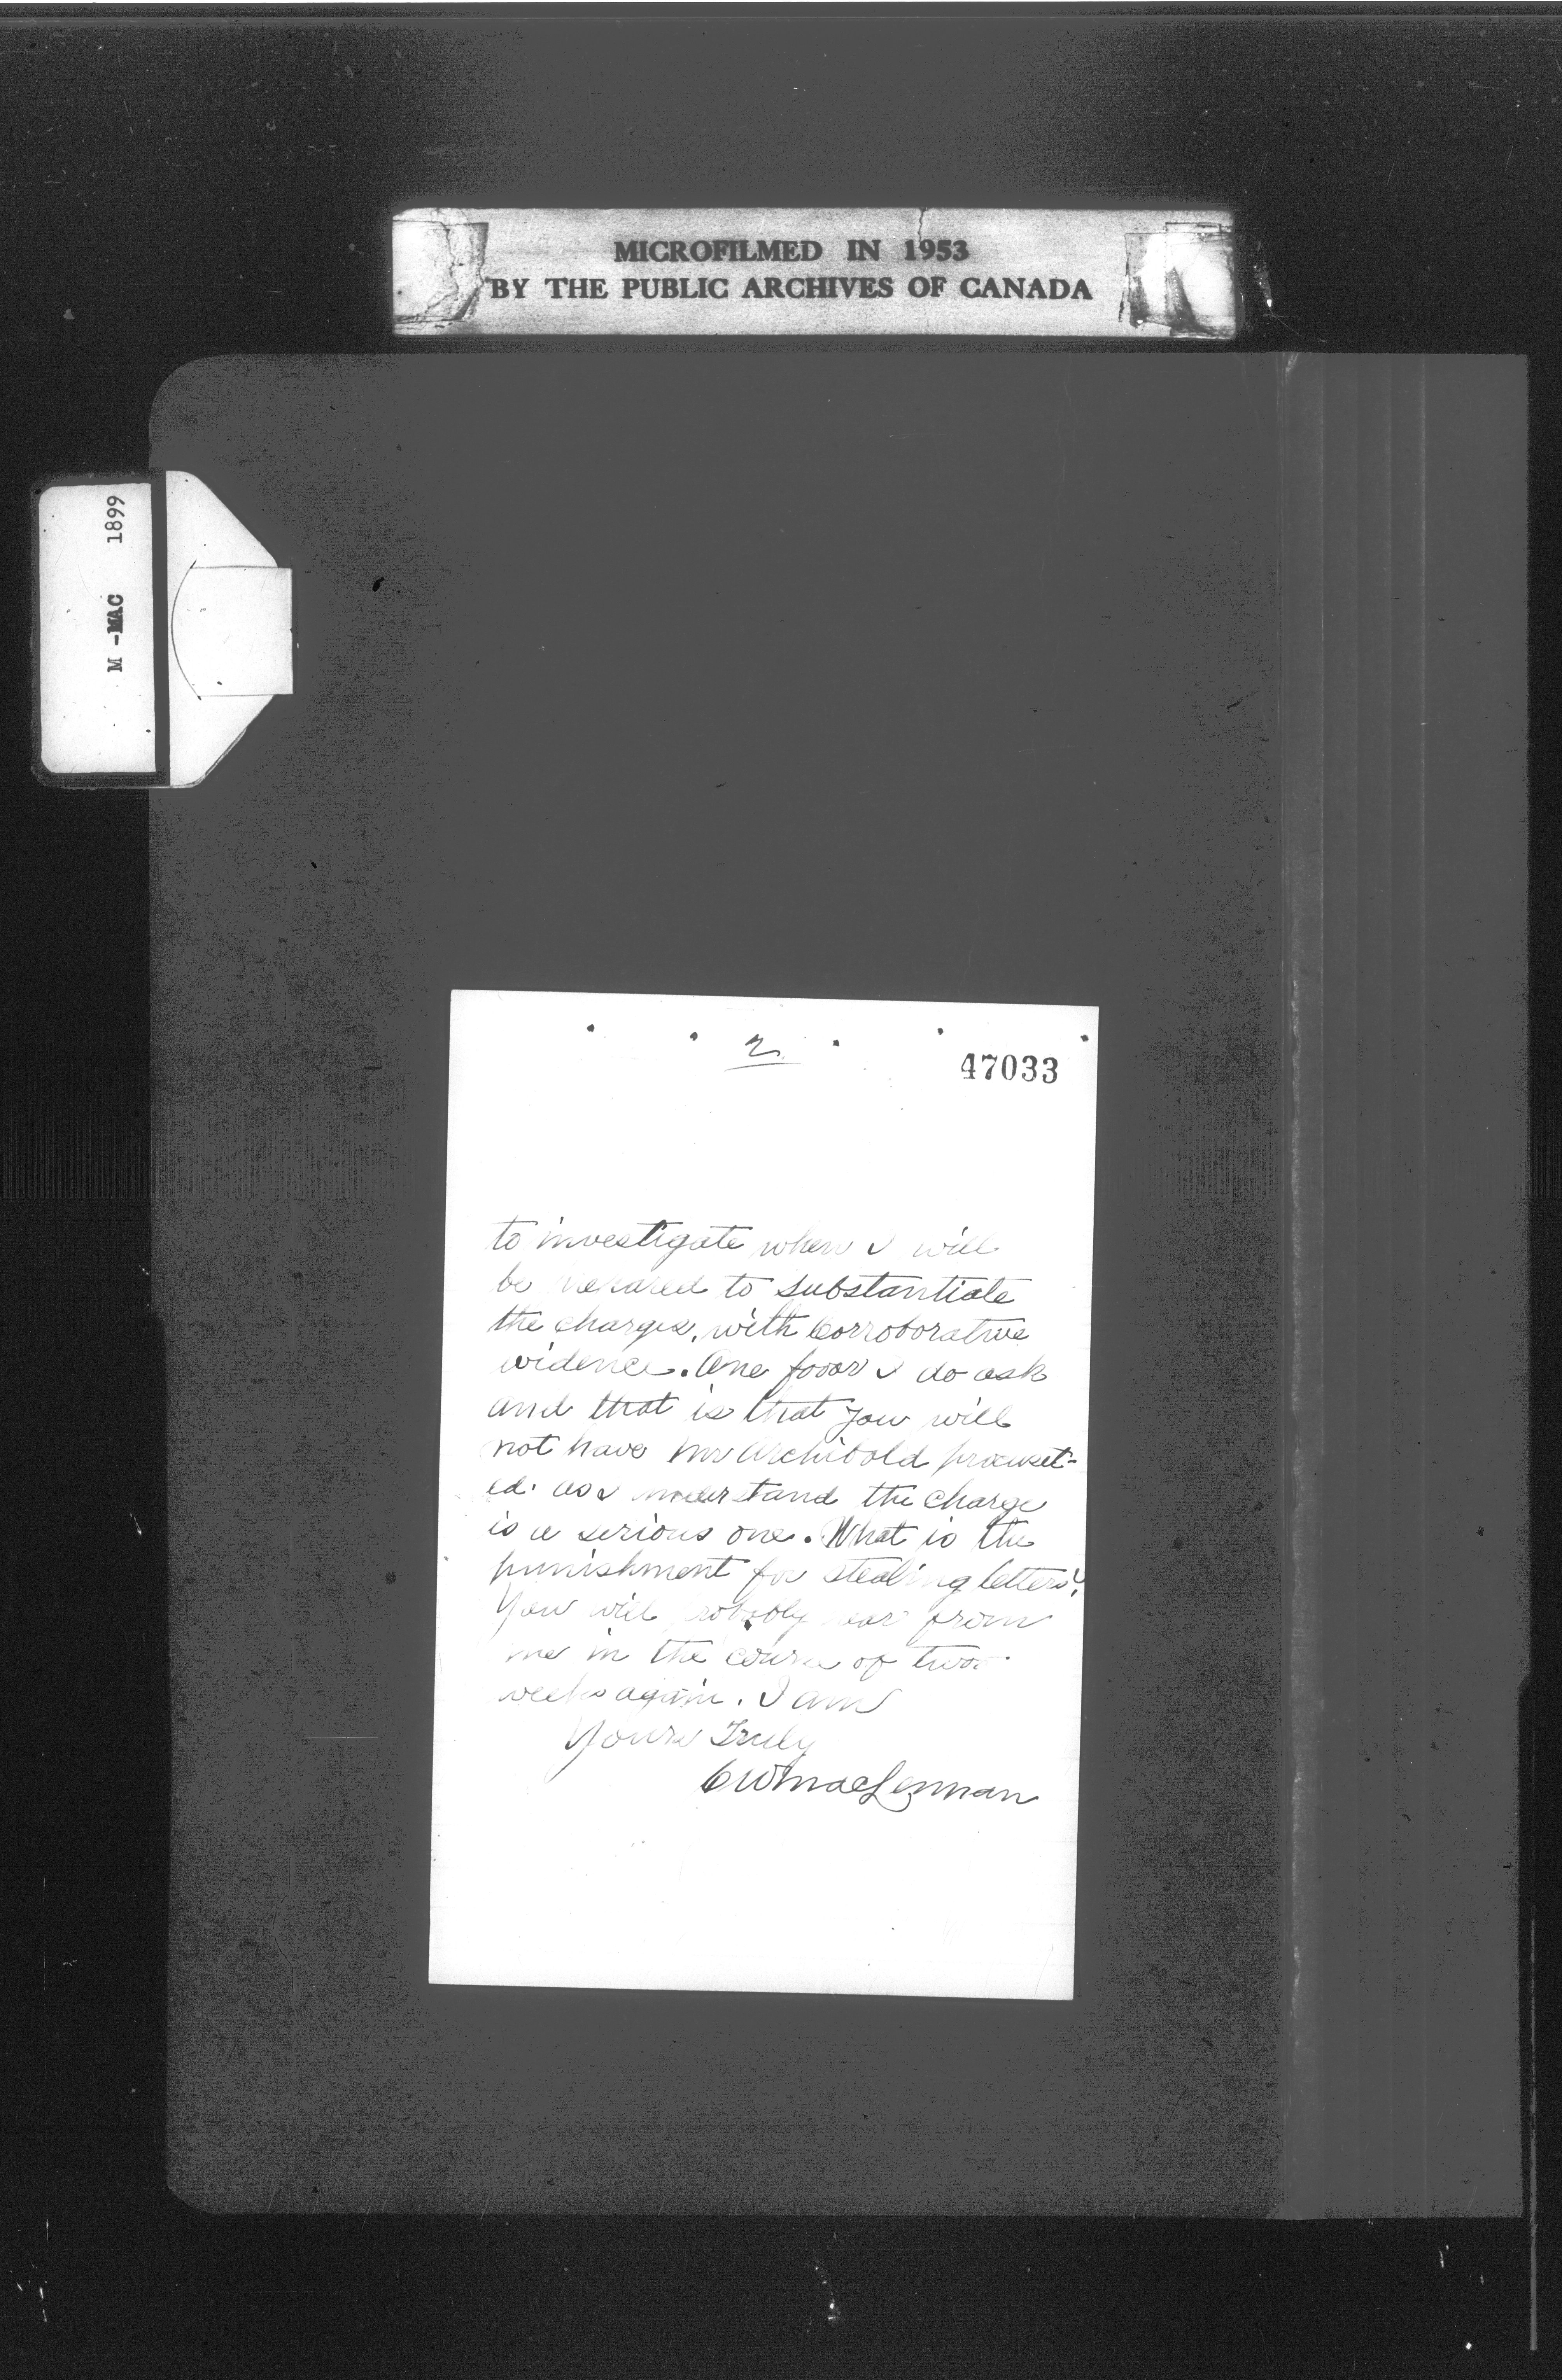 MICROFILMED IN 1953
BY THE PUBLIC ARCHIVES OF CANADA
M-MAC 1899
2
47033
to investigate when I will
be prepared to substantiate
the charges, with Corroborative
evidence. One favor I do ask
and that is that you will
not have Mr Archibold
ed. as I understand the charge
is a serious one. What is the
punishment for stealing letters?
You will probably hear from
me in the course of two
weeks again. I am
Yours Truly
C W MacLennan